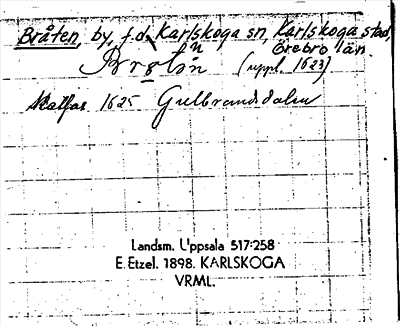 Bråten, by, f.d. Karlskoga sn, Karlskoga stad,
Örebro län.
(uppl. 1623)
1625 Gulbrandsdalen
Landsm. Uppsala 517:258
E. Etzel. 1898. KARLSKOGA
VRML.